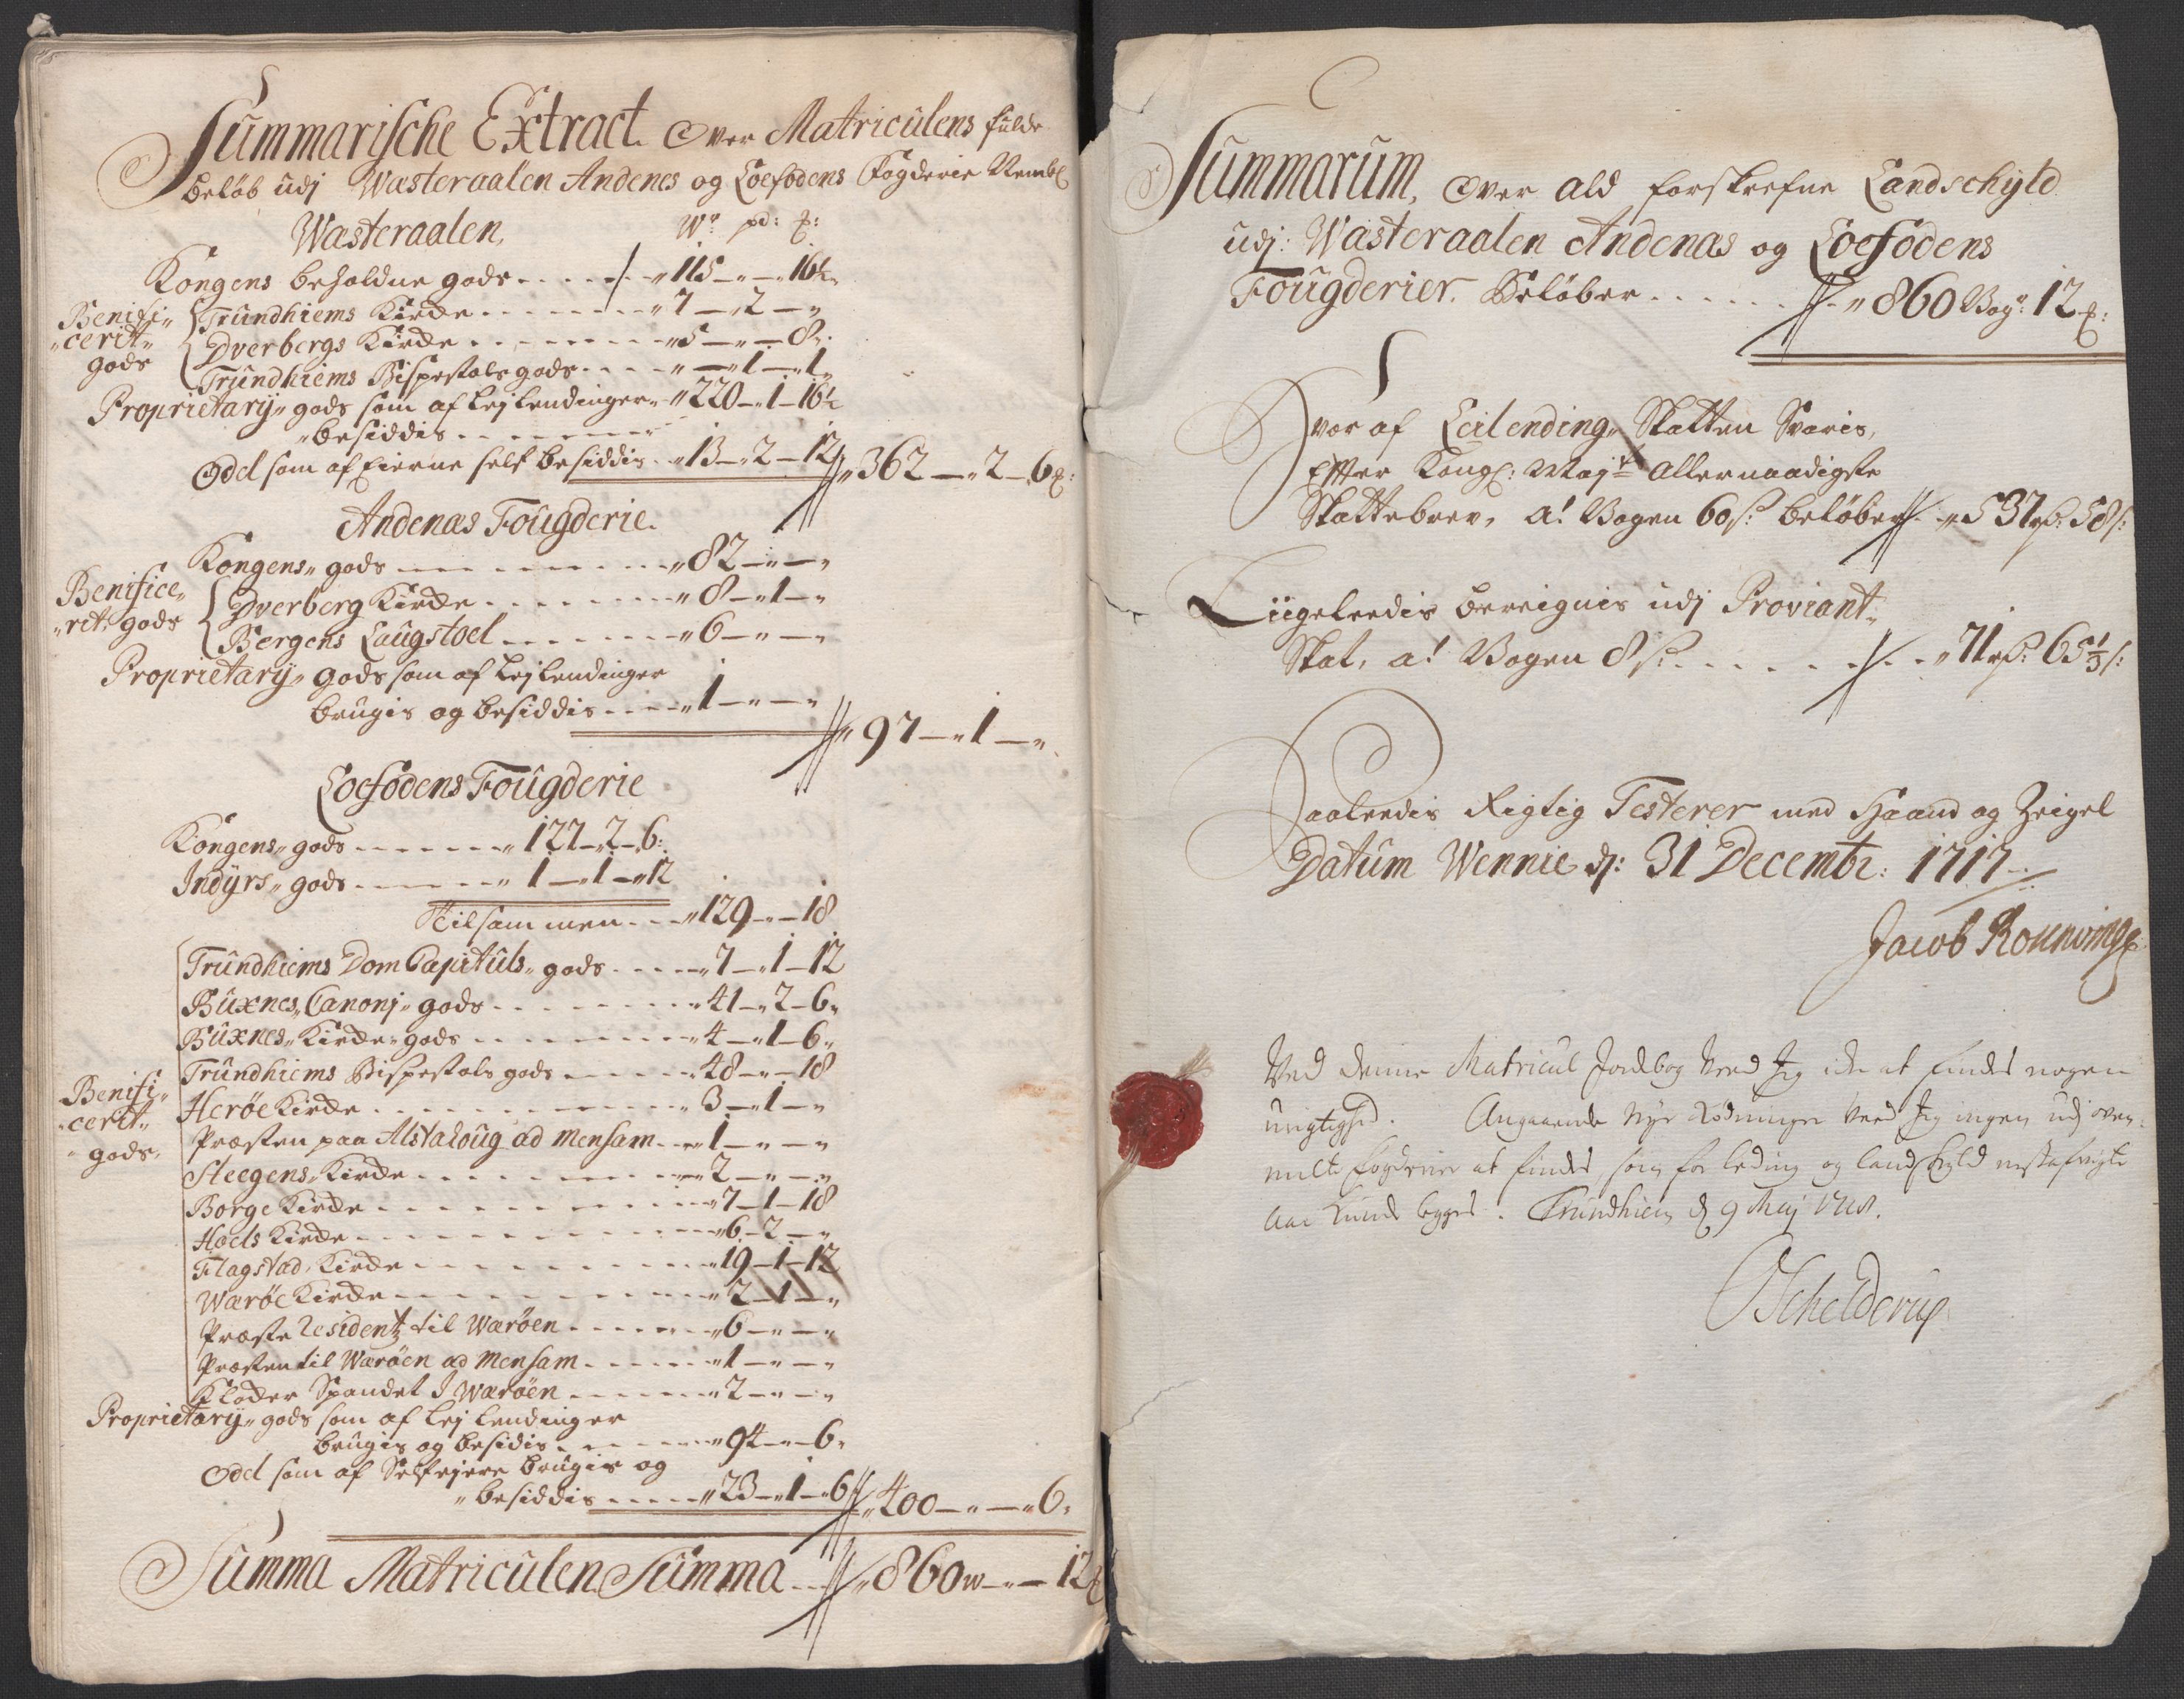 Summarische Extract over Matriculens fulde
beløb udj Wæsteraalen Andenes og Loefodens Fogderie
Wæsteraalen. W: pd: ℔:
Kongens beholdne gods . . . . „115 — „ — 16½
Benifi„
„cerit„
gods
Trundhiems Kircke . . . . „7 — 2 — „
Dverbergs Kircke . . . . „5 — „ — 8„
Trundhiems Bispestols gods . . . . „ — 1 — 1„
Proprietary„ gods som af Lejlendinger „220 — 1 — 16½
„besiddis . . . .
Odel som af Eierne self besiddis . „13 — 2 — 12 „362 — „2 — 6℔:
Andenæs Fougderie.
Kongens„ gods . . . . „82 — „ — „
Benifice„
„rit„ gods
Dverberg Kircke . . . . „8 — 1 — „
Bergens Laugstoel . . . . „6 — „ — „
Proprietary„ gods som af Lejlendinger
brugis og besiddis . . . . „1 — „ — „
„97 — „1 — „
Loefodens Fougderie
Kongens„ gods . . . . „127 — 2 — 6:
Indyrs„ gods . . . . „1 — 1 — 12
Tilsammen . . . „129 — „ — 18
Benifi„
„cerit„
„gods„
Trundhiems Dom Capituls„ gods . . . . „7 — 1 — 12
Buxnes„ Canonj„ gods . . . . „41 — 2 — 6„
Buxnes„ Kircke„ gods . . . . „4 — 1 — 6„
Trundhiems Bispestols gods . . . . „48 — „ — 18
Herøe Kircke . . . . „3 — 1 — „
Præsten paa Alstahoug ad Mensam . . . „1 — „ — „
Steegens„ Kircke . . . . „2 — „ — „
Borge Kircke . . . . „7 — 1 — 18
Hoels Kircke . . . . „6 — 2 — „
Flagstad„ Kircke . . . . „19 — 1 — 12
Wærøe Kircke . . . . „2 — 1 — „
Præste Residentz til Wærøen . . . . „6 — „ — „
Præsten til Wærøen ad Mensam . . . . „1 — „ — „
Klocker Spandet J Wærøen . . . . „2 — „ — „
Proprietary„ gods som af Lejlendinger
brugis og besidis . . . . „94 — „ — 6„
Odel som af Selfejere brugis og
„besiddis . . . . „23 — 1 — 6 „400 — „ — „6„
Summa Matriculen Summa . . „860 w — „ — 12℔
Summarum, over ald forskrefne Landschyld
udj: Wæsteraalen Andenæs og Loefodens
Fougderier. Beløber . . . . „860 Wog: 12℔:
Hvor af Leilending„ Skatten Svaris,
Efter Kongl: Mayts Allernaadigste
Skattebrev, a! Wogen 60 s: beløber „537 rd: 58 s:
Liigeleedis bereignis udj Proviant„
Skat, a! Wogen 8 s: . . . . „71 rd: 65⅓ s:
Saaleedis Rigtig Testerer med Haand og Zeigel
Datum Wennie d: 31 Decembr: 1717
Jacob Rönninge
Ved denne Matricul Jordbog Veed Jeg icke at findes nogen
urigtighed. Angaaende Nye Rödninger veed Jeg ingen udj oven„
melte fogderier at findes, som for leding og landskyld nestafvigte
Aar kunde legges. Trundhiem d 9 Maj 1718.
OSchelderup